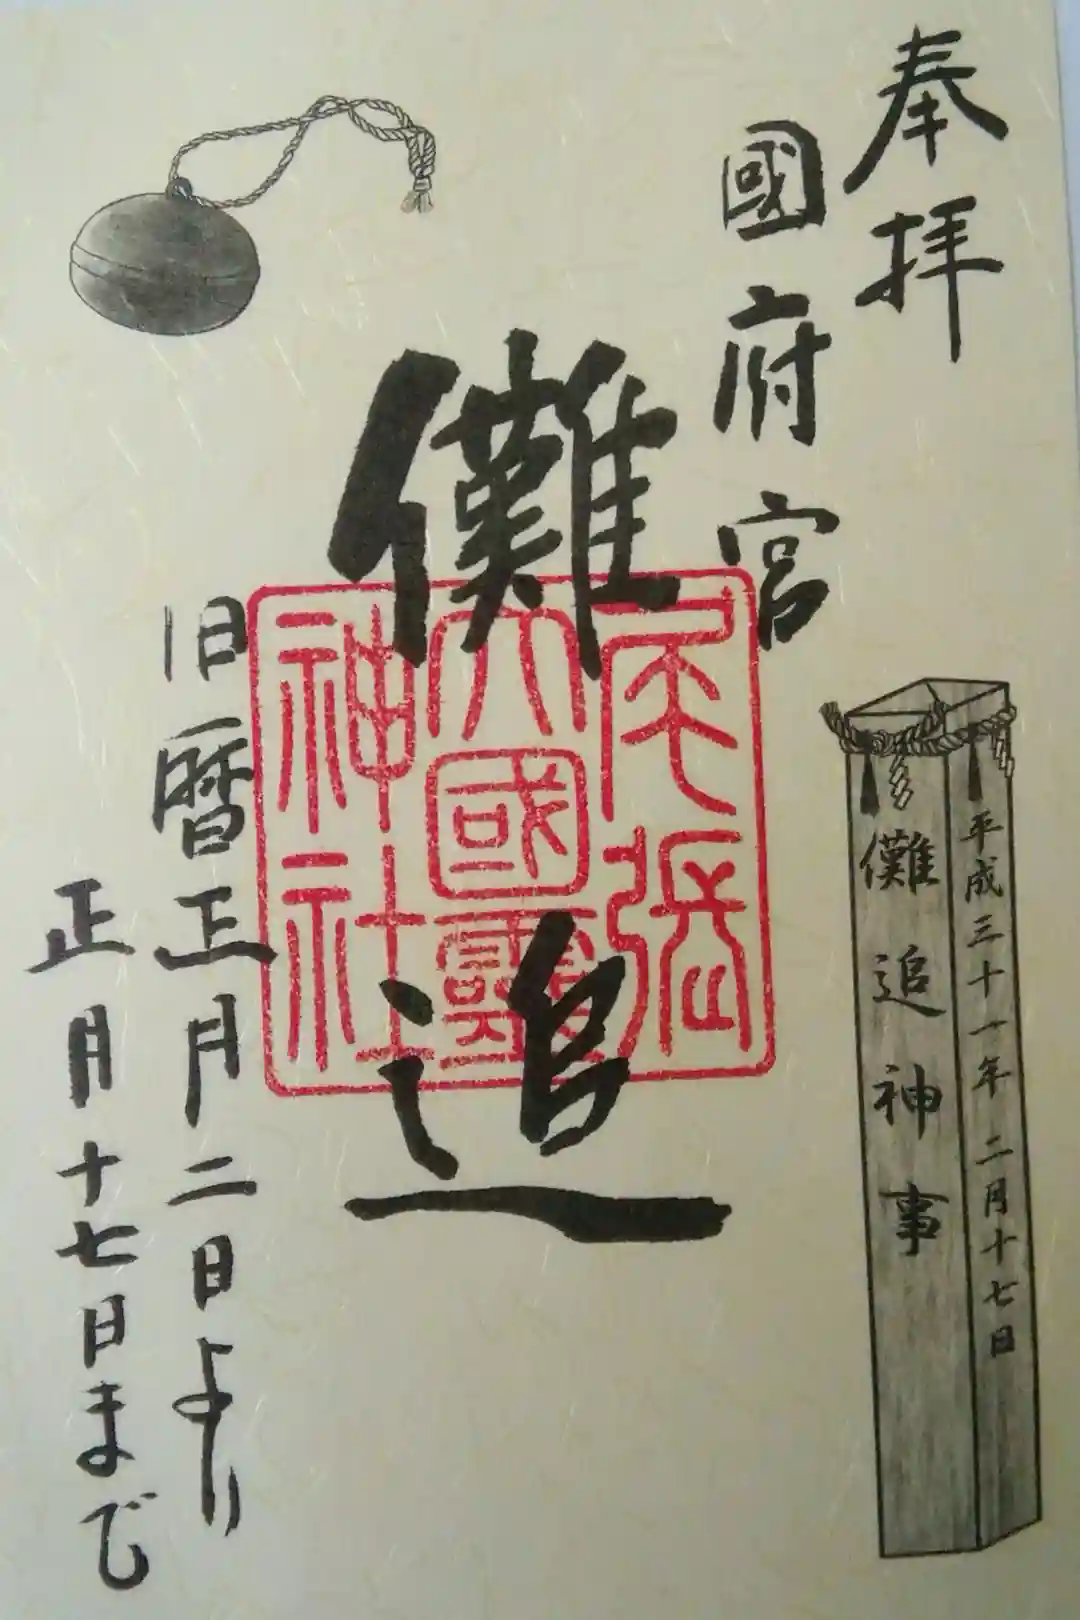 奉拝
國府宮
儺追
尾張
大國霊
神社
平成三十一年二月十七日
儺追神事
旧暦正月二日より
正月十七日まで